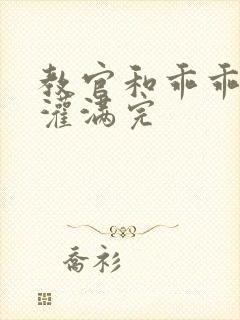 教官和乖乖
灌满完
乔衫